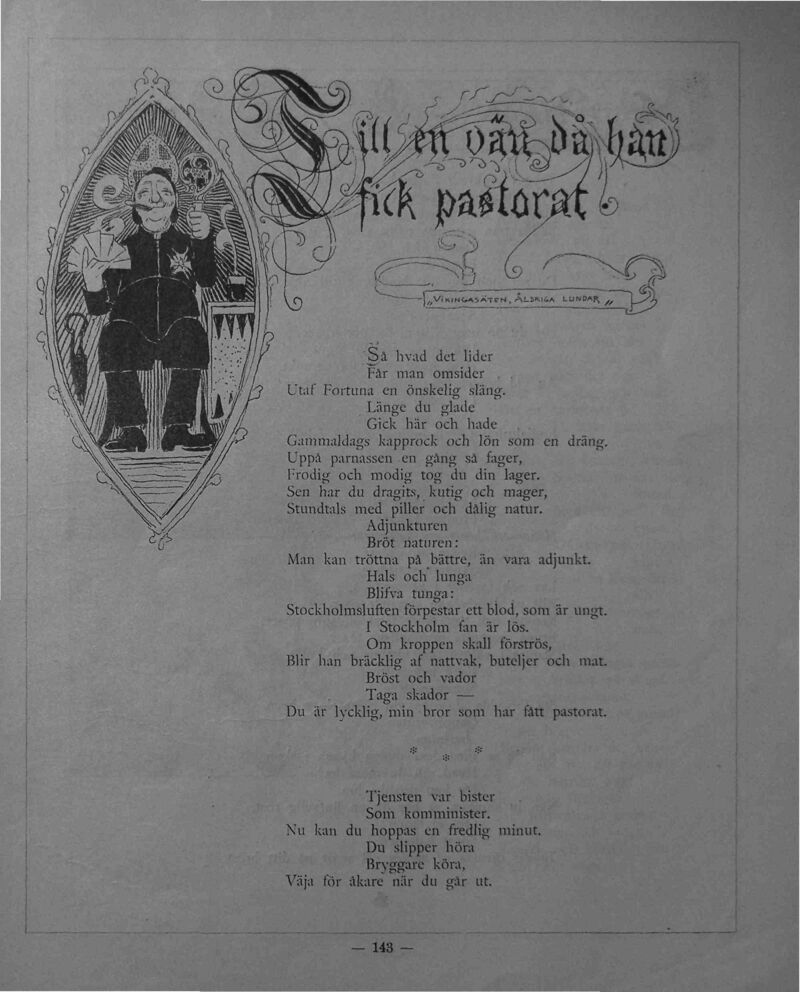 Till en vän då han
fick pastorat.
„Vikingasäten, Ålskiga lundar„
Så hvad det lider
Får man omsider
Utaf Fortuna en önskelig släng.
Länge du glade
Gick här och hade
Gammaldags kapprock och lön som en dräng.
Uppå parnassen en gång så fager,
Frodig och modig tog du din lager.
Sen har du dragits, kutig och mager,
Stundtals med piller och dålig natur.
Adjunkturen
Bröt naturen:
Man kan tröttna på bättre, än vara adjunkt.
Hals och lunga
Blifva tunga:
Stockholmsluften förpestar ett blod, som är ungt.
I Stockholm fan är lös.
Om kroppen skall förströs,
Blir han bräcklig af nattvak, buteljer och mat.
Bröst och vador
Taga skador —
Du är lycklig, min bror som har fått pastorat.
* * *
Tjensten var bister
Som komminister.
Nu kan du hoppas en fredlig minut.
Du slipper höra
Bryggare köra,
Väja för åkare när du går ut.
— 143 —